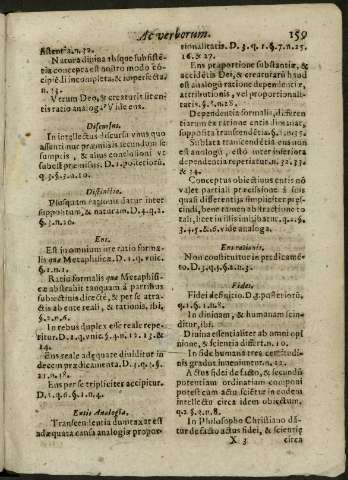 Ac verborum. 159
sistent. n. 52.
Natura diuina absque subsistē-
tia concepta est nostro modo cō-
cipiēdi incompleta, & imperfecta,
n. 53.
Vtrum Deo, & creaturis sit en-
tis ratio analoga? Vide ens.
Discursus.
In intellectus discursu vnus quo
assentimur præmissis secundum se
sumptis, & alius conclusioni vt
subest præmissis. D. 1. posteriorū,
q. 3. §. 2. n. 10.
Distinctio.
Plusquam rationis datur inter
suppositum, & naturam. D. 4. q. 2.
§. 3. n. 10.
Ens.
Est in omnium iure ratio forma-
lis quæ Metaphisicæ. D. 1. q. vnic.
§. 1. n. 1.
Ratio formalis quæ Metaphisi-
cæ abstrahit tanquam à partibus
subiectiuis directè, & per se attra-
ctis ab ente reali, & rationis, ibi,
§. 2. n. 6.
In rebus duplex esse reale repe-
ritur. D. 2. q. vnic. §. 4. n. 12. 13. &
14.
Ens reale adæquatè diuiditur in
decem prædicamenta. D. 3. q. 3. §.
21. n. 18.
Ens per se tripliciter accipitur.
D. 1. q. 6. §. 1. n. 4.
Entis Analogia.
Transcendentia dumtaxat est
adæquata causa analogiæ propor-
tionalitatis. D. 3. q. 1. §. 7. n. 25.
16. & 27.
Ens proportione substantiæ, &
accidētis Dei, & creaturarū haud
est analogū ratione dependentiæ,
attributionis, vel proportionali-
tatis. §. 8. n. 28.
Dependentia formalis, differen-
tiarum est ratione entis similiter,
supposita transcendētia. §. 1. n. 35.
Sublata transcendētia ens non
est analogū, etsi inter inferiora
dependentia reperiatur. n. 32. 33.
& 34.
Conceptus obiectiuus entis nō
valet partiali præcissione à suis
quasi differentijs simpliciter præ-
scindi, bene tamen abstractione to-
tali, licet in illis imbibitur. q. 2. §.
3. 4. 5. & 6. vide analoga.
Ens rationis.
Non constituitur in predicamē-
to. D. 3. q. 4. §. 2. n. 3.
Fides.
Fidei definitio. D. 3. posteriorū,
q. 1. §. 1. n. 8.
In diuinam, & humanam scin-
ditur, ibi.
Diuina essentialiter ab omni opi-
nione, & scientia differt. n. 10.
In fide humana tres certitudi-
nis gradus inueniuntur. n. 22.
Actus fidei de facto, & secundū
potentiam ordinatiam componi
potest cum actu scietur in eodem
intellectu circa idem obiectum.
q. 2. §. 2. n. 8.
In Philosopho Christiano dā-
tur de facto actus fidei, & scientię
X 3 circa